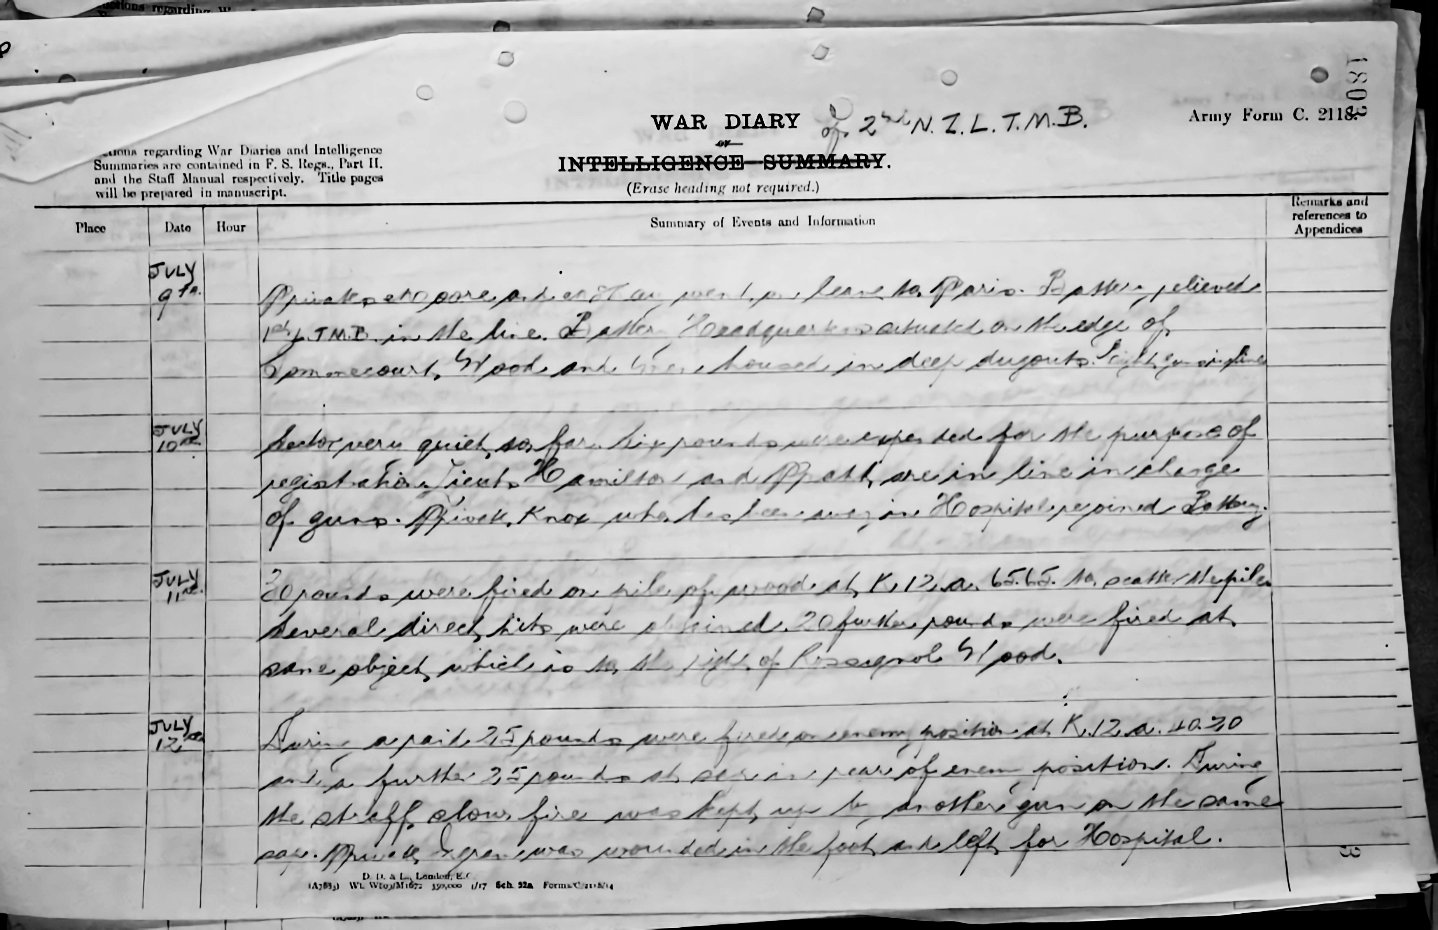 WAR DIARY
of 2nd N.Z.L.T.M.B.
or
INTELLIGENCE SUMMARY.
(Erase heading not required.)
Army Form C. 2118.
1803
regarding War Diaries and Intelligence
Summaries are contained in F. S. Regs., Part II.
and the Staff Manual respectively. Title pages
will be prepared in manuscript.
Place
Date
Hour
Summary of Events and Information
Remarks and
references to
Appendices
JULY
9th.
Privates and went on leave to Paris. Battery relieved
1st L.T.M.B. in the line. Battery Headquarters situated on the edge of
Wood and were housed in deep dugouts. Eight guns in line
JULY
10th
Sector very quiet so far. Six rounds were expended for the purpose of
registration. Lieuts Hamilton and Pratt are in line in charge
of guns. Private Knox who has been away in Hospital rejoined Battery.
JULY
11th
30 rounds were fired on pile of wood at K.12.a. 65.65. to scatter the pile
Several direct hits were obtained. 20 further rounds were fired at
same object which is to the right of Rossignol Wood.
JULY
12th
During a raid 25 rounds were fired on enemy position at K.12.a.40.20
and a further 25 rounds at sap in rear of enemy position. During
the straff slow fire was kept up by another gun on the same
sap. Private Ingram was wounded in the foot and left for Hospital.
D. D. & L., London, E.C.
(A7883) Wt. W809/M1672 350,000 4/17 Sch. 52a Forms/C/2118/14
3